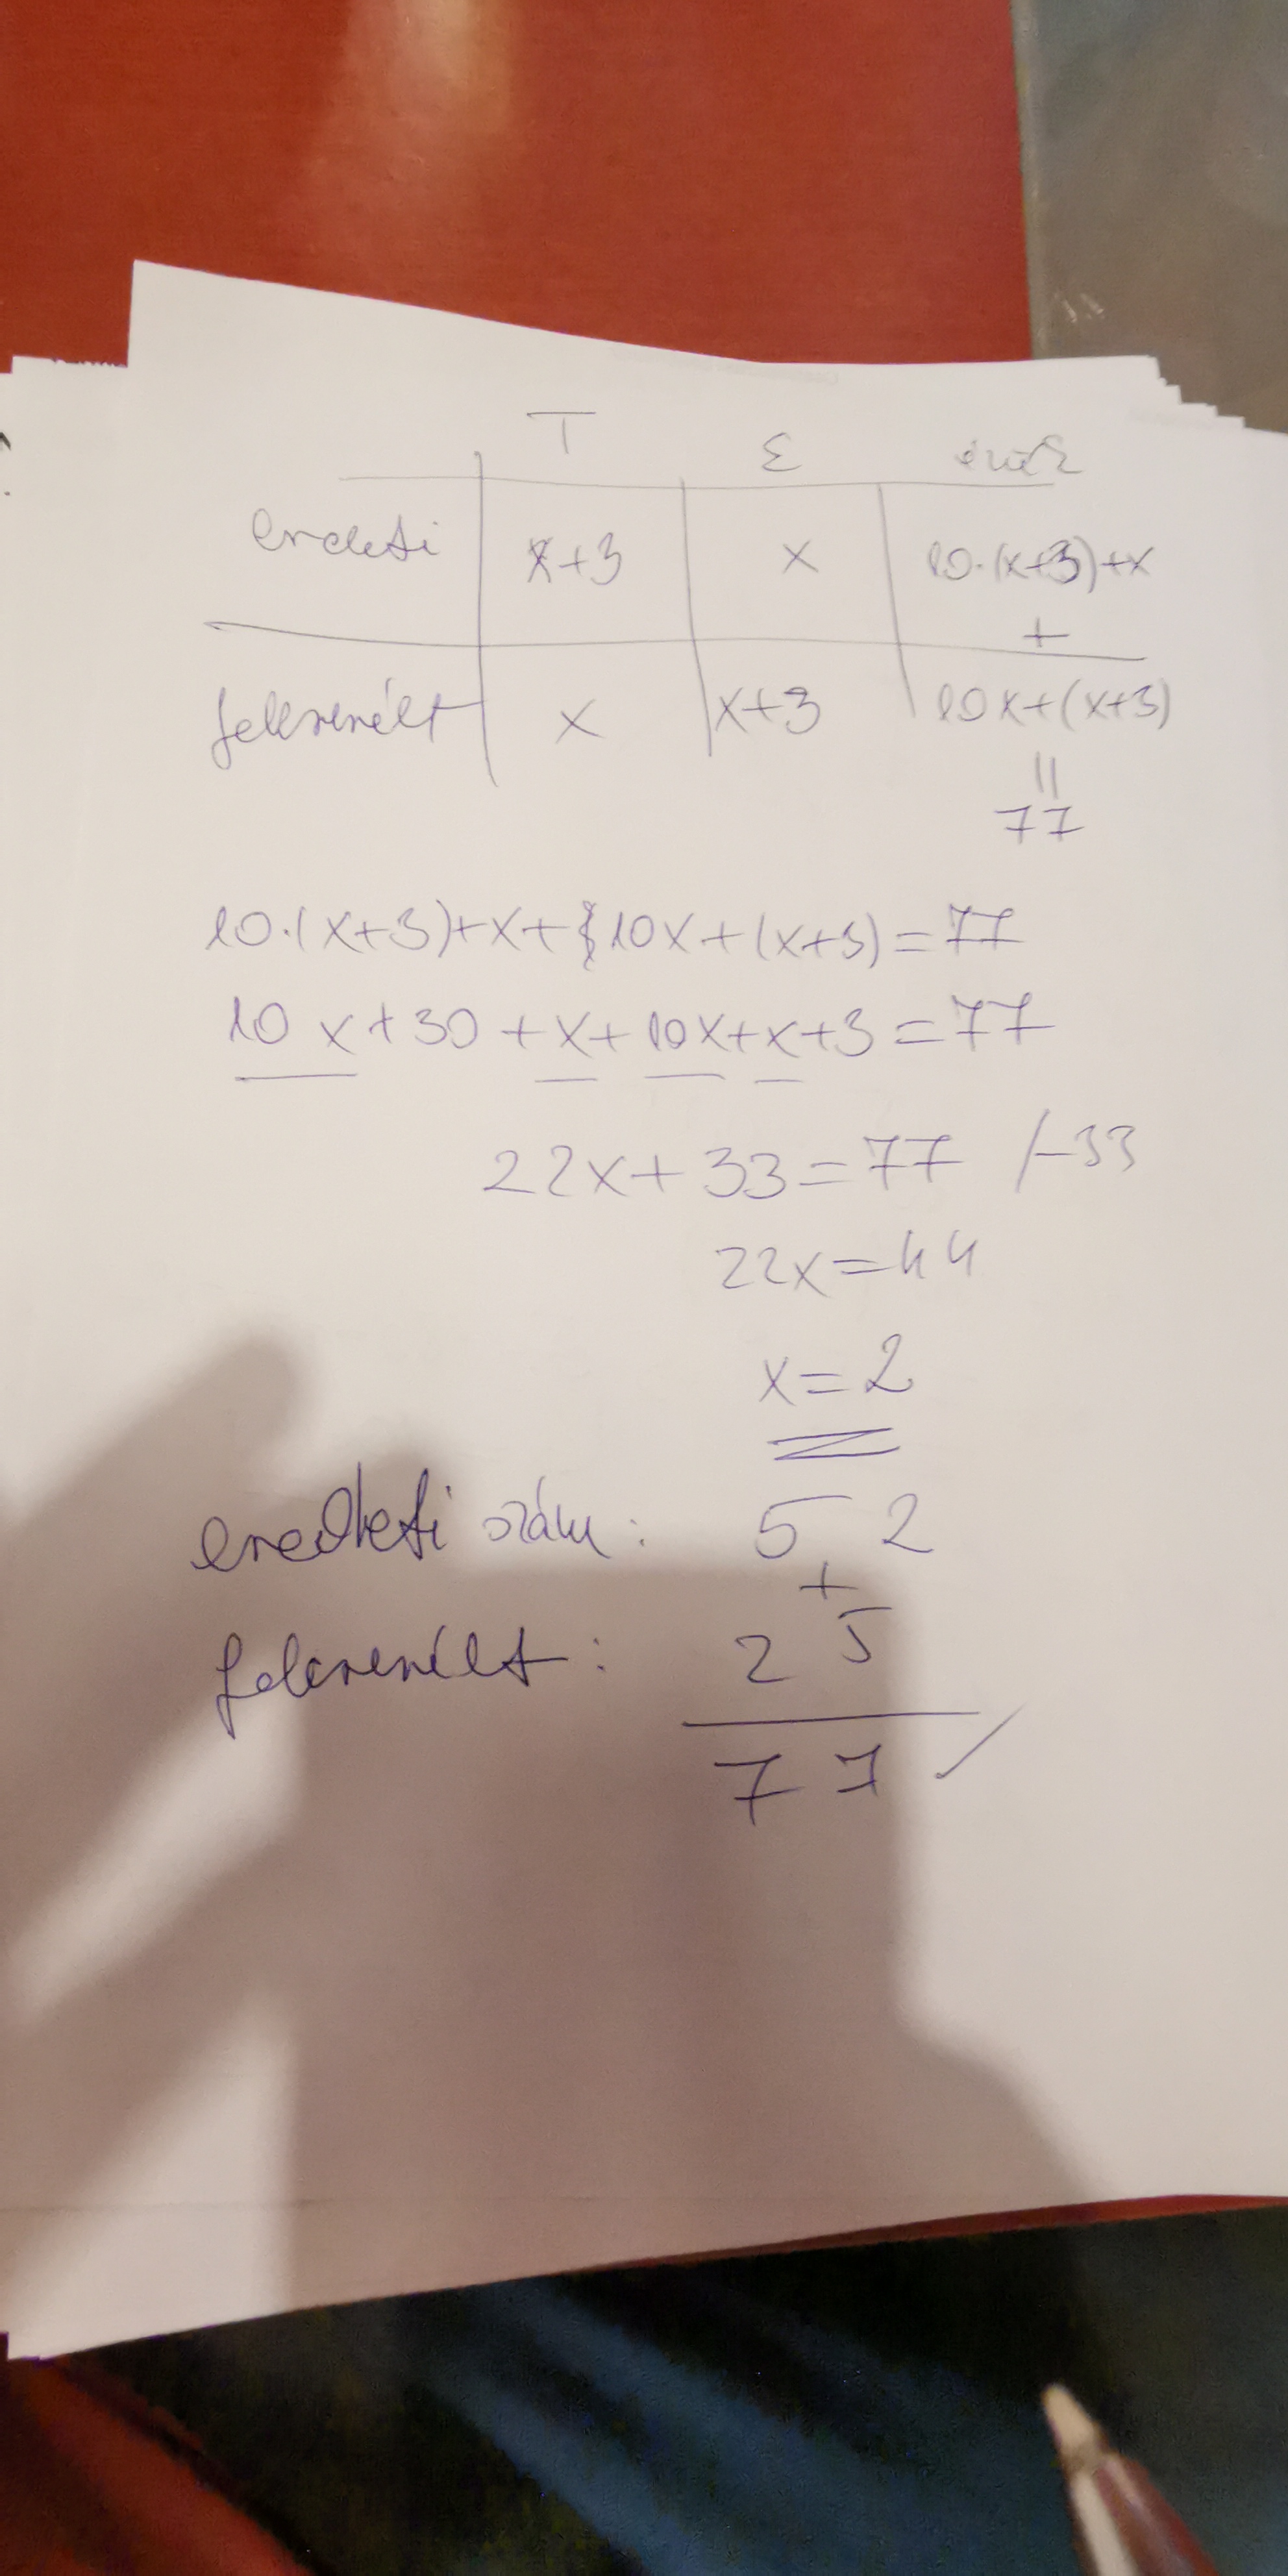 T E szám
eredeti x+3 x 10·(x+3)+x
+
felcserélt x x+3 10x+(x+3)
=
77
10·(x+3)+x+10x+(x+3)=77
10x+30+x+10x+x+3=77
22x+33=77 /-33
22x=44
x=2
eredeti szám: 5 2
+
felcserélt: 2 5
7 7